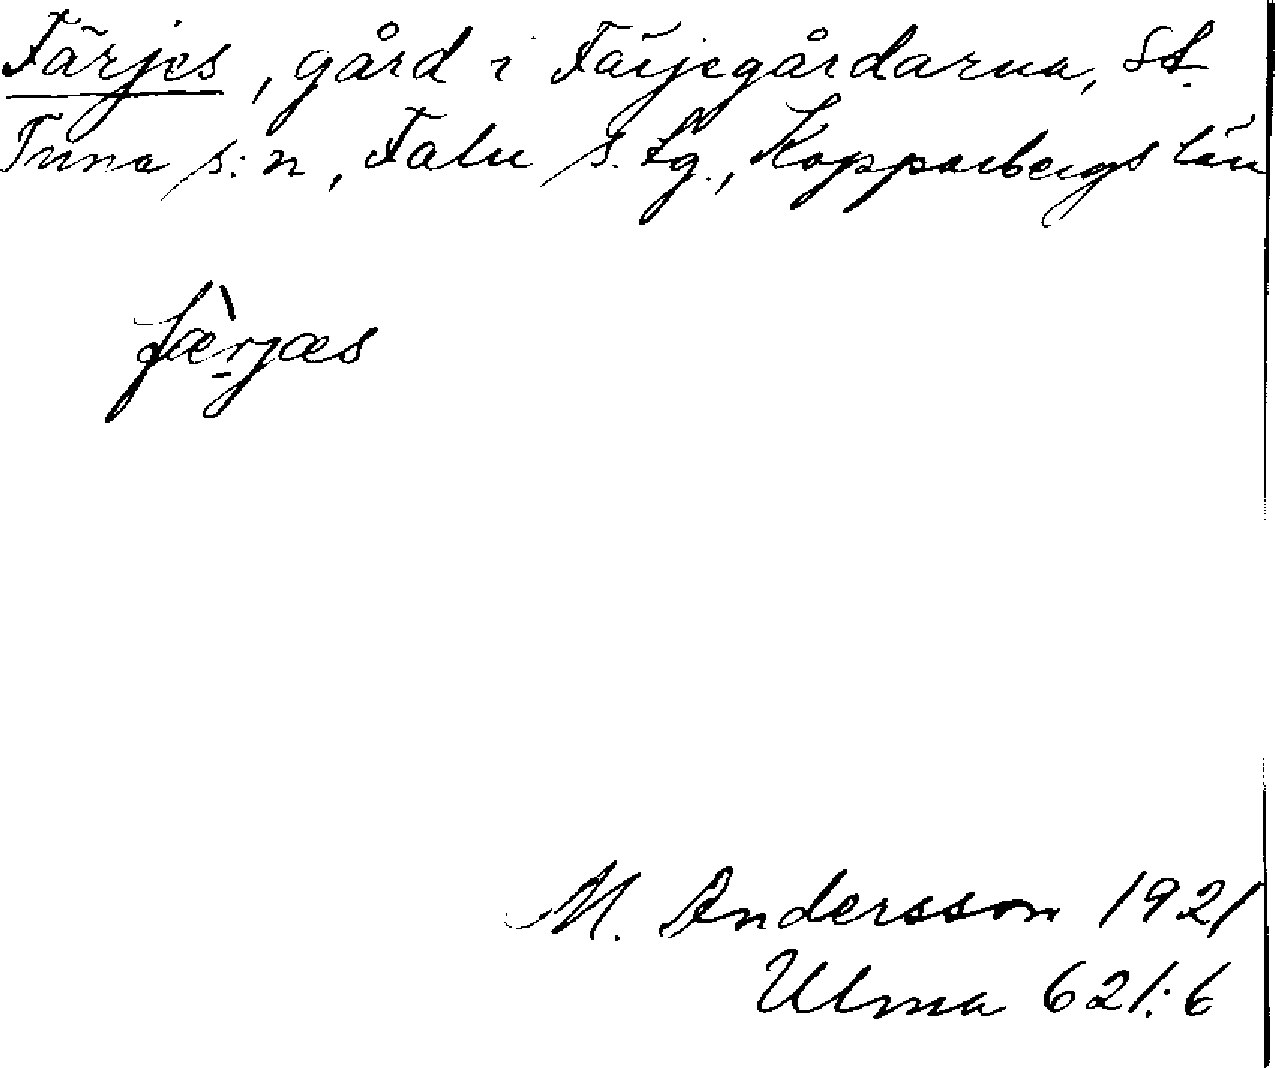 Färjes, gård i Färjegårdarna, St.
Tuna s:n, Falu s. tg., Kopparbergs län
fæ̀rjæs
M. Andersson 1921
Ulma 621:6